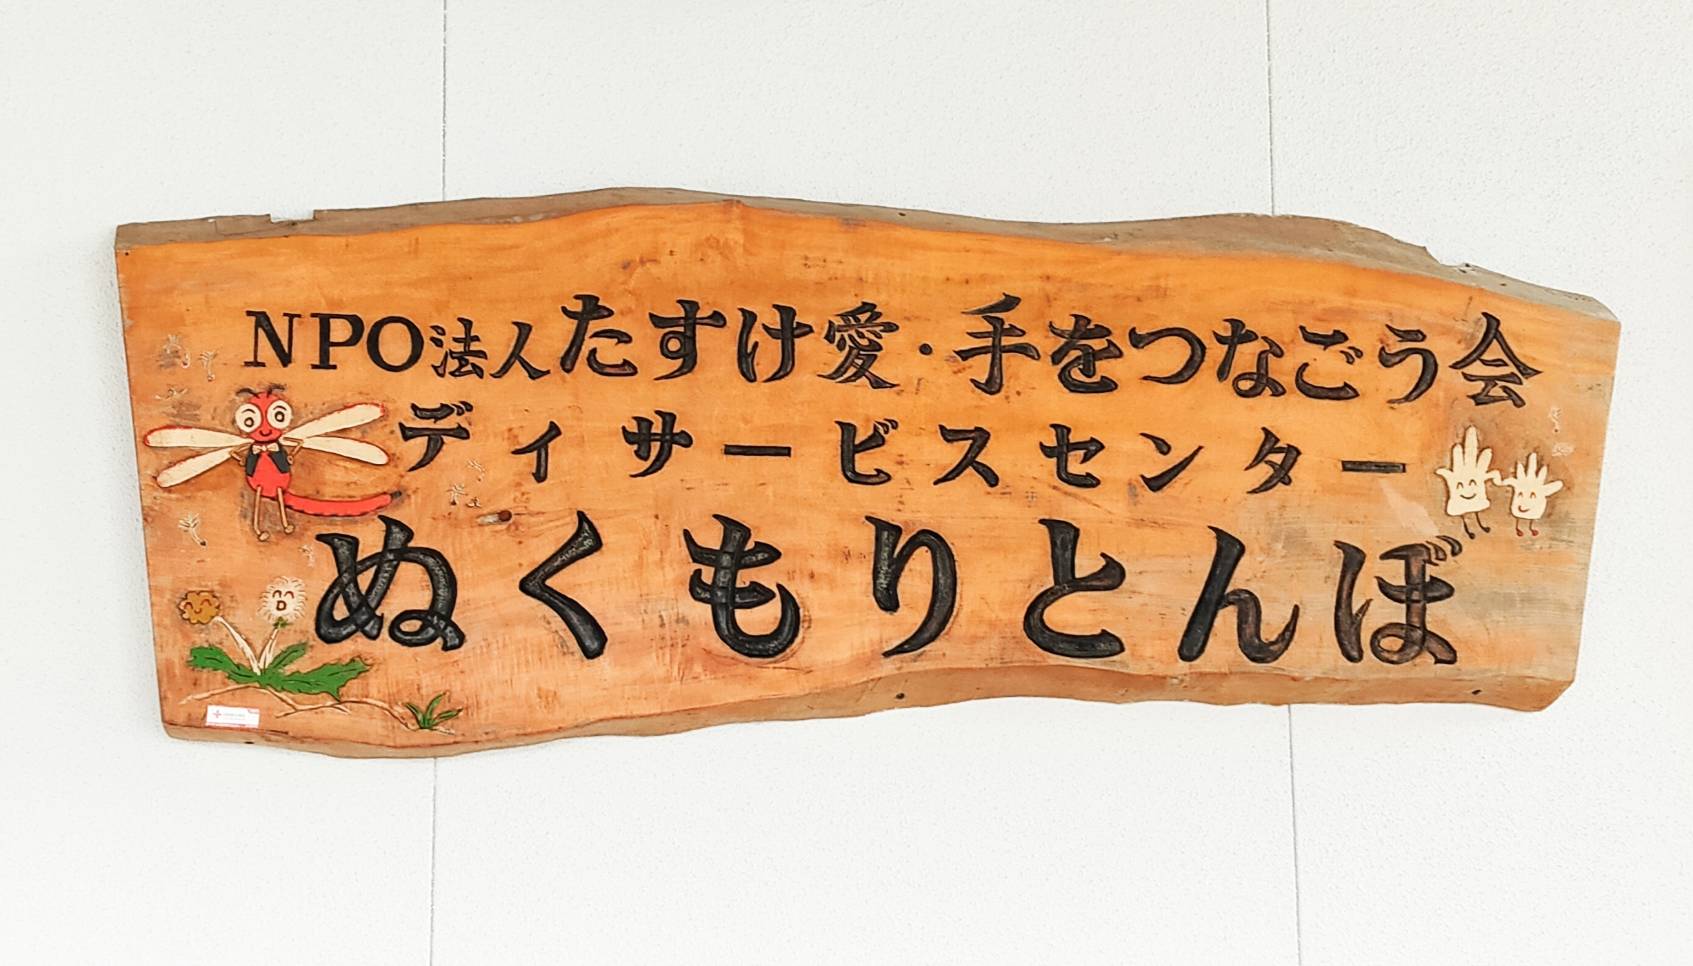 NPO法人たすけ愛・手をつなごう会
ディサービスセンター
ぬくもりとんぼ